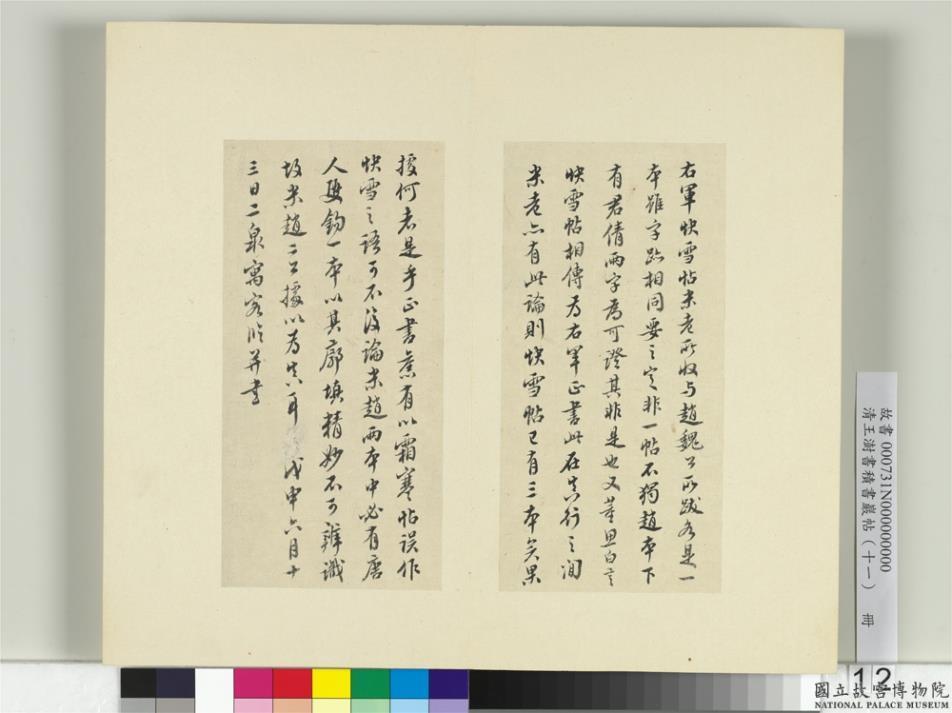 右軍快雪帖米老所收与趙魏公所跋各是一
本雖字跡相同要之定非一帖不獨趙本下
有君倩兩字為可證其非是也又董思白言
快雪帖相傳為右軍正書此在真行之間
米老亦有此論則快雪帖已有三本矣果
援何者是乎正書蕉有以霜寒帖误作
快雪之語可不復論米趙兩本中必有唐
人雙鉤一本以其廓填精妙不可辨識
故米趙二公據以為真耳 戊申六月十
三日二泉寓客臨并書
故書 000731N000000000
清王澍書積書巖帖（十一） 冊
12
國立故宮博物院
NATIONAL PALACE MUSEUM